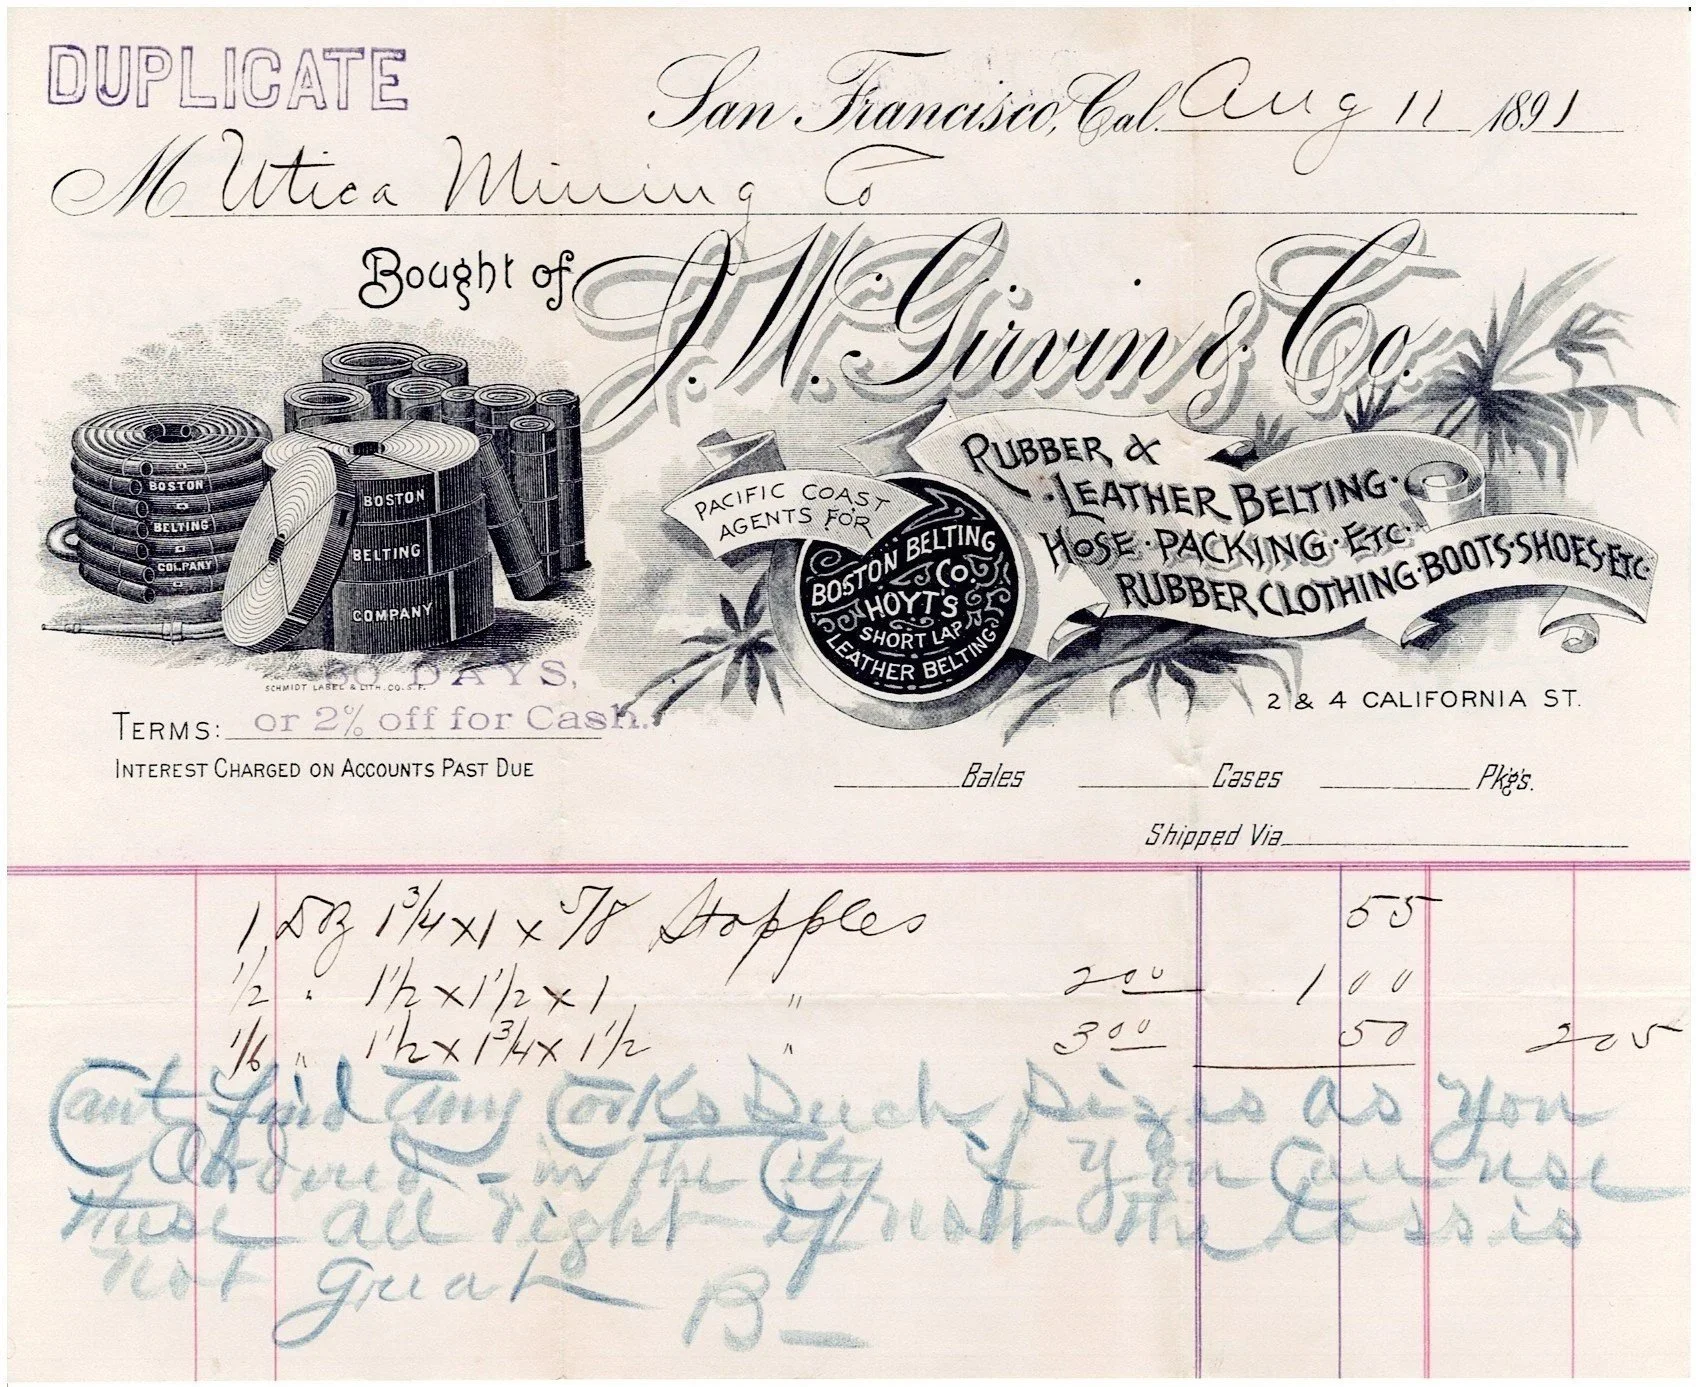 DUPLICATE
San Francisco, Cal. Aug 11 1891
M Utica Mining Co
Bought of J. W. Girvin & Co.
RUBBER &
LEATHER BELTING
HOSE · PACKING · ETC
RUBBER CLOTHING · BOOTS · SHOES · ETC
PACIFIC COAST
AGENTS FOR
BOSTON BELTING
CO.
HOYT'S
SHORT LAP
LEATHER BELTING
BOSTON
BELTING
COMPANY
BOSTON
BELTING
COMPANY
SCHMIDT LABEL & LITH. CO. S.F.
DAYS,
2 & 4 CALIFORNIA ST.
TERMS: or 2% off for Cash.
INTEREST CHARGED ON ACCOUNTS PAST DUE
Bales Cases Pkg's.
Shipped Via
1 Doz 1 3/4 x 1 x 5/8 Stopples 55
1/2 " 1 1/2 x 1 1/2 x 1 " 2 00 1 00
1/6 " 1 1/2 x 1 3/4 x 1 1/2 " 3 00 50 2 05
Cant find any Corks Such Sizes as you
Ordered - in the City if you can use
these all right if not the loss is
not great B